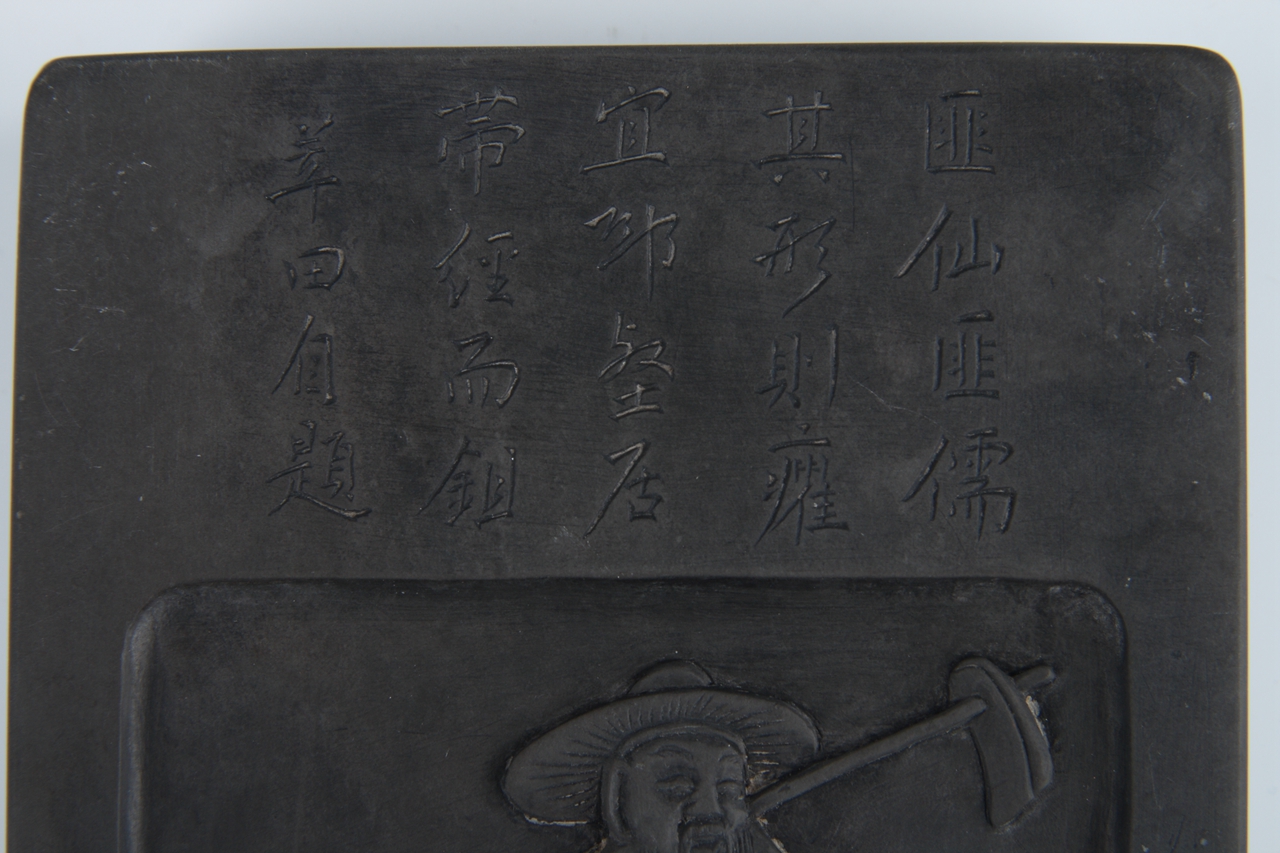 匪仙匪儒
其形則癯
宜邱壑居
帶經而鉏
莘田自題